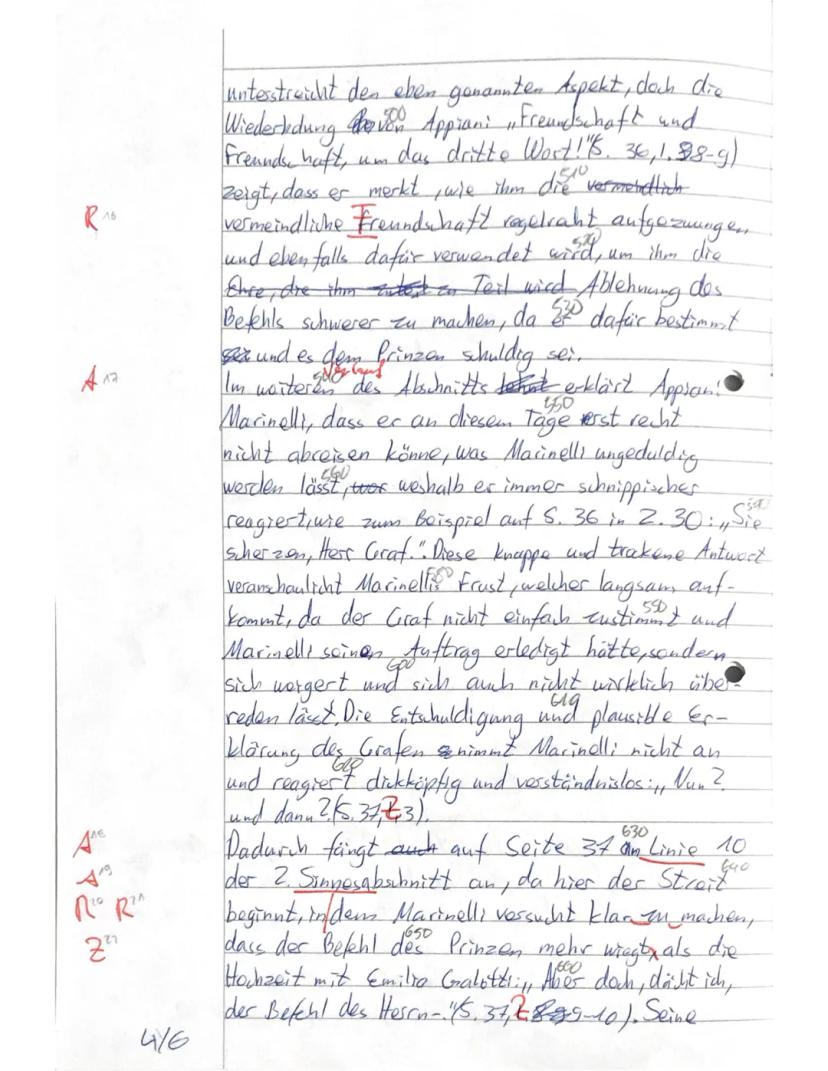 unterstreicht den eben genannten Aspekt, doch die
500
Wiederholung von Appiani „Freundschaft und
Freundschaft, um das dritte Wort!"(S. 36, l. 8-9)
510
zeigt, dass er merkt, wie ihm die vermeindlich
R 16
vermeindliche Freundschaft regelraht aufgezwungen
520
und ebenfalls dafür verwendet wird, um ihm die
Ehre, die ihm zuteil zu Teil wird Ablehnung des
530
Befehls schwerer zu machen, da er dafür bestimmt
sei und es dem Prinzen schuldig sei.
Verlauf
A 17
540
Im weiteren des Abschnitts erklärt Appiani
550
Marinelli, dass er an diesem Tage erst recht
nicht abreisen könne, was Marinelli ungeduldig
560
werden lässt, weshalb er immer schnippischer
570
reagiert, wie zum Beispiel auf S. 36 in Z. 30: „Sie
scherzen, Herr Graf.". Diese knappe und trakene Antwort
580
veranschaulicht Marinellis Frust, welcher langsam auf-
590
kommt, da der Graf nicht einfach zustimmt und
Marinelli seinen Auftrag erledigt hätte, sondern
600
sich weigert und sich auch nicht wirklich über-
610
reden lässt. Die Entschuldigung und plausible Er-
klärung des Grafen nimmt Marinelli nicht an
620
und reagiert dickköpfig und verständnislos: „Nun?
und dann?(S. 37, Z. 3).
A 18
630
Dadurch fängt auch auf Seite 37 an Linie 10
A 19
640
der 2. Sinnesabschnitt an, da hier der Streit
R 20 R 21
beginnt, in dem Marinelli versucht klar zu machen,
Z 22
650
dass der Befehl des Prinzen mehr wiegt, als die
660
Hochzeit mit Emilia Galotti: „Aber doch, dächt ich,
der Befehl des Herrn-."(S. 37, Z 9-10). Seine
4/6